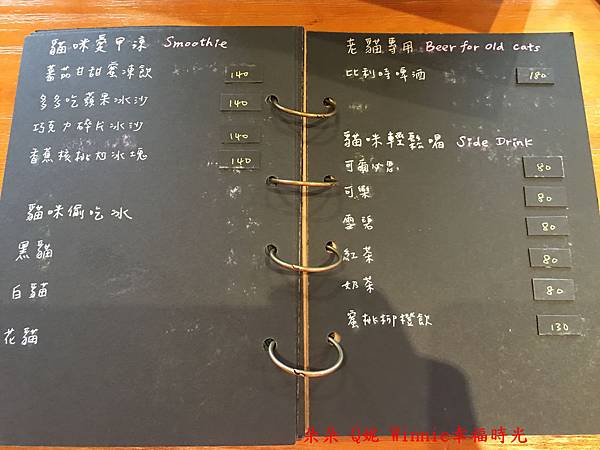 貓咪愛甲涼 Smoothie
蕃茄甘甜蜜凍飲 140
多多吃蘋果冰沙 140
巧克力碎片冰沙 140
香蕉核桃冰塊 140
貓咪偷吃冰
黑貓
白貓
花貓
老貓專用 Beer for old cats
比利時啤酒 180
貓咪輕鬆喝 Side Drink
可爾必思 80
可樂 80
雪碧 80
紅茶 80
奶茶 80
蜜桃柳橙飲 130
朵朵 Q妮 Winnie幸福時光